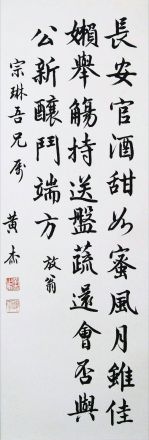 長安官酒甜如蜜風月雖佳
嬾舉觴持送盤蔬還會否與
公新釀鬥端方 放翁
宗琳吾兄屬
黃杰